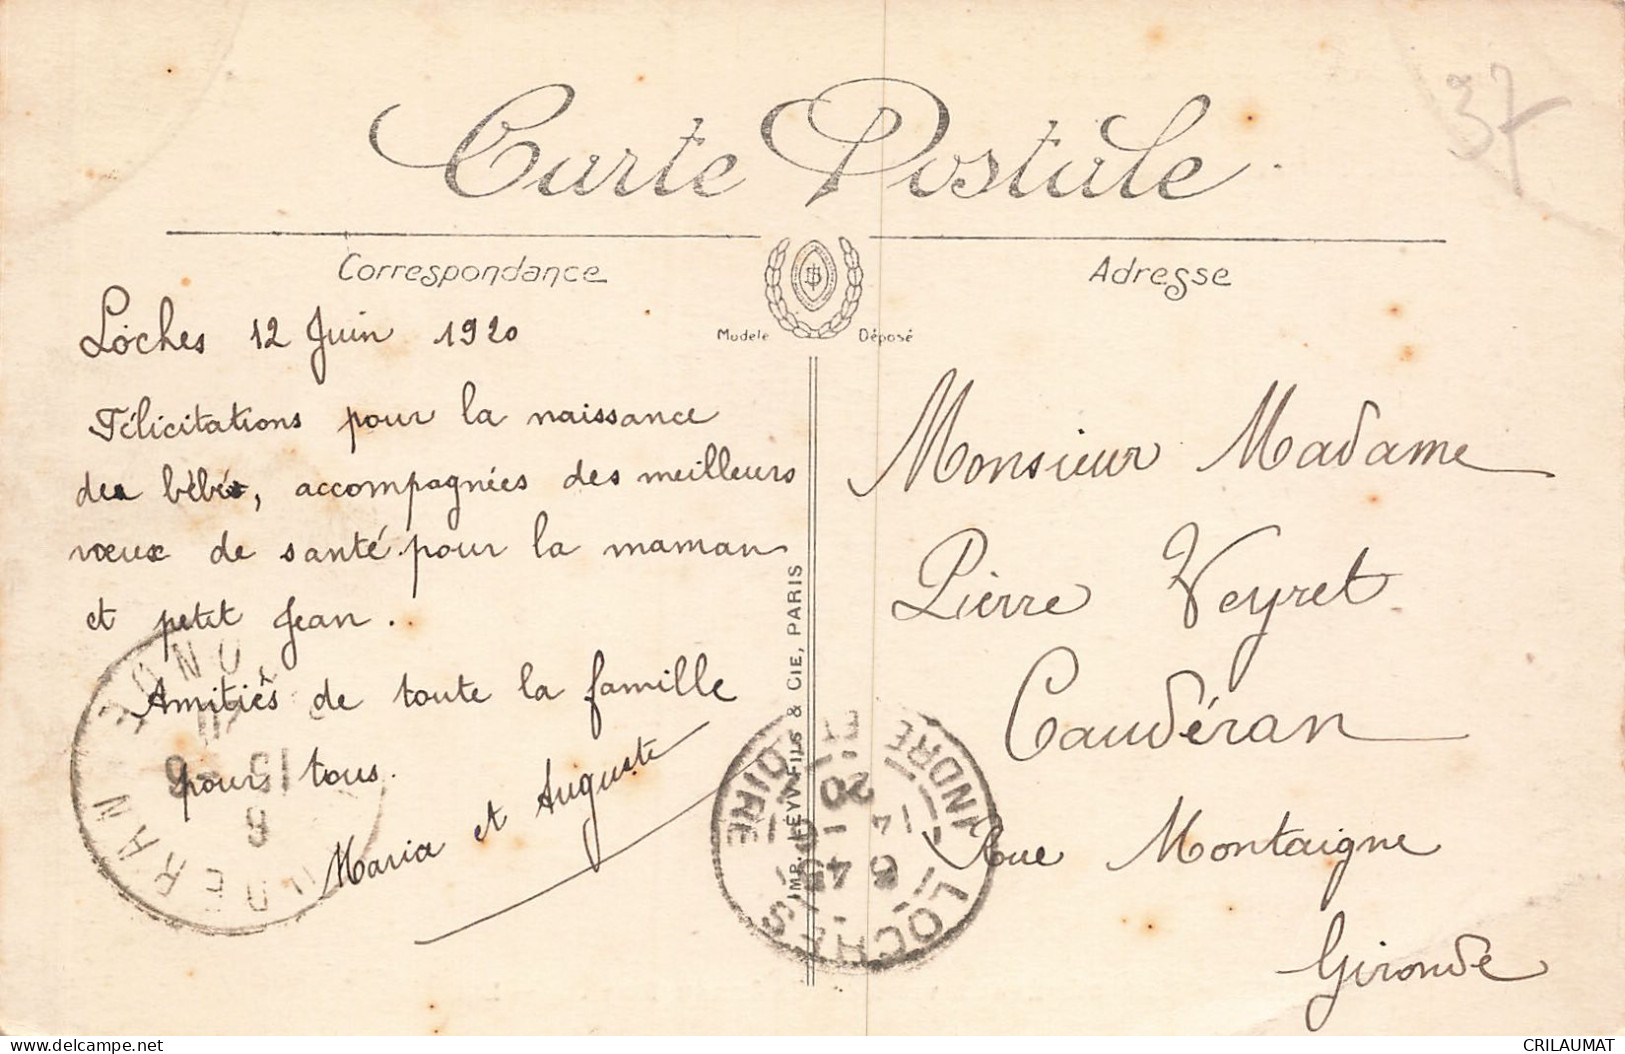 37
Carte Postale
Correspondance
Adresse
Modèle Déposé
Loches 12 Juin 1920
Félicitations pour la naissance
des bébés, accompagnées des meilleurs
vœux de santé pour la maman
et petit Jean.
Amitiés de toute la famille
pours tous.
Maria et Auguste
IMP. LÉVY FILS & CIE, PARIS
Monsieur Madame
Pierre Veyret
Caudéran
Rue Montaigne
Gironde
LOCHES
INDRE ET LOIRE
delcampe.net
CRILAUMAT